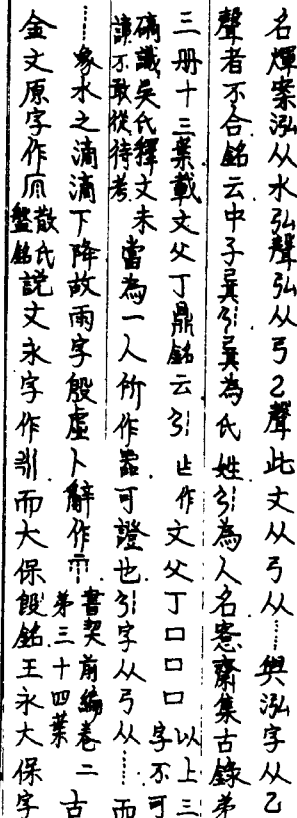 名煇案泓从水弘聲弘从弓𠃋聲此文从弓从……與泓字从乙
聲者不合銘云中子㠱為氏姓為人名愙齋集古錄弟
三册十三葉載文父丁鼎銘云作文父丁口口口以上三字不可
碻識吳氏釋文未諆不敢從待考當為一人所作器可證也字从弓从……而
……象水之滴滴下降故雨字殷虛卜辭作書契前編卷二第三十四葉古
金文原字作散氏盤銘說文永字作而大保𣪘銘王永大保字